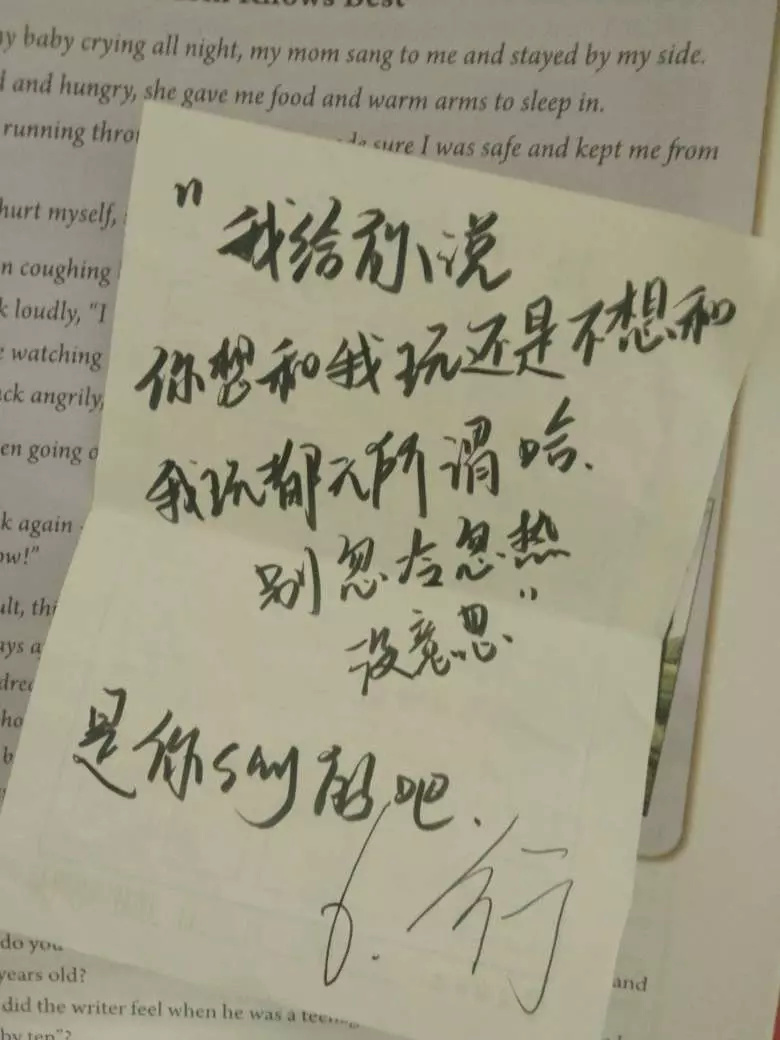 Knows Best
baby crying all night, my mom sang to me and stayed by my side.
and hungry, she gave me food and warm arms to sleep in.
running sure I was safe and kept me from
hurt myself,
coughing
loudly, "I
watching
angrily,
going
again
"我给 说
你想和我玩还是不想和
我玩都无所谓哈.
别忽冷忽热
没意思."
是你 吧.
6. 行
do you
years old? and
did the writer feel when he was a
by ten"?